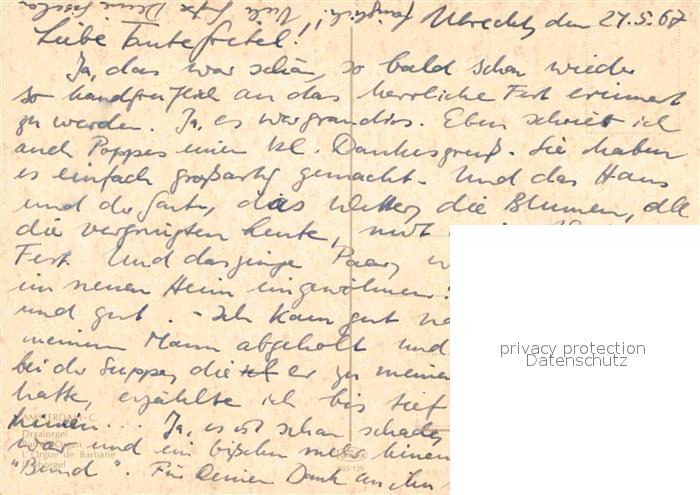 Utrecht, den 27.5.67
Liebe Tante Gretel!
Ja, das war schön, so bald schon wieder
so handgreiflich an das herrliche Fest erinnert
zu werden. Ja, es war grandios. Eben schrieb ich
auch Poppes einen kl. Dankesgruß. Sie haben
es einfach großartig gemacht. Und das Haus
und der Garten, das Wetter, die Blumen, all
die vergnügten Leute,
Fest. Und das junge Paar,
im neuen Heim eingewöhnen
und gut. - Ich kam gut
meinem Mann abgeholt und
bei der Suppe, die er zu meiner
hatte, erzählte ich bis tief
hinein... Ja, es ist schon schade,
war und ein bißchen mehr
"Bund". Für Deinen Dank an ihn
Viele Grüße Deine
privacy protection
Datenschutz
AMSTERDAM-C.
Draaiorgel
L'Orgue de Barbarie
Drehorgel